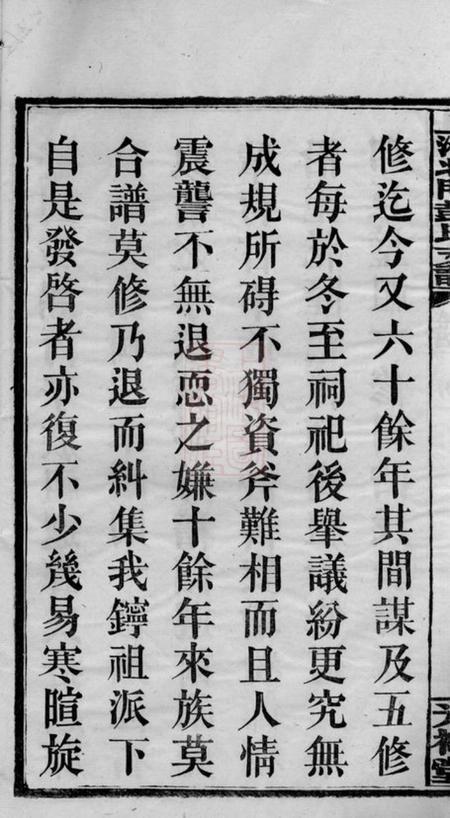 修迄今又六十餘年其間謀及五修
者每於冬至祠祀後舉議紛更究無
成規所碍不獨資斧難相而且人情
震讋不無退恧之嫌十餘年來族莫
合譜莫修乃退而糾集我鑏祖派下
自是發啓者亦復不少幾易寒暄旋